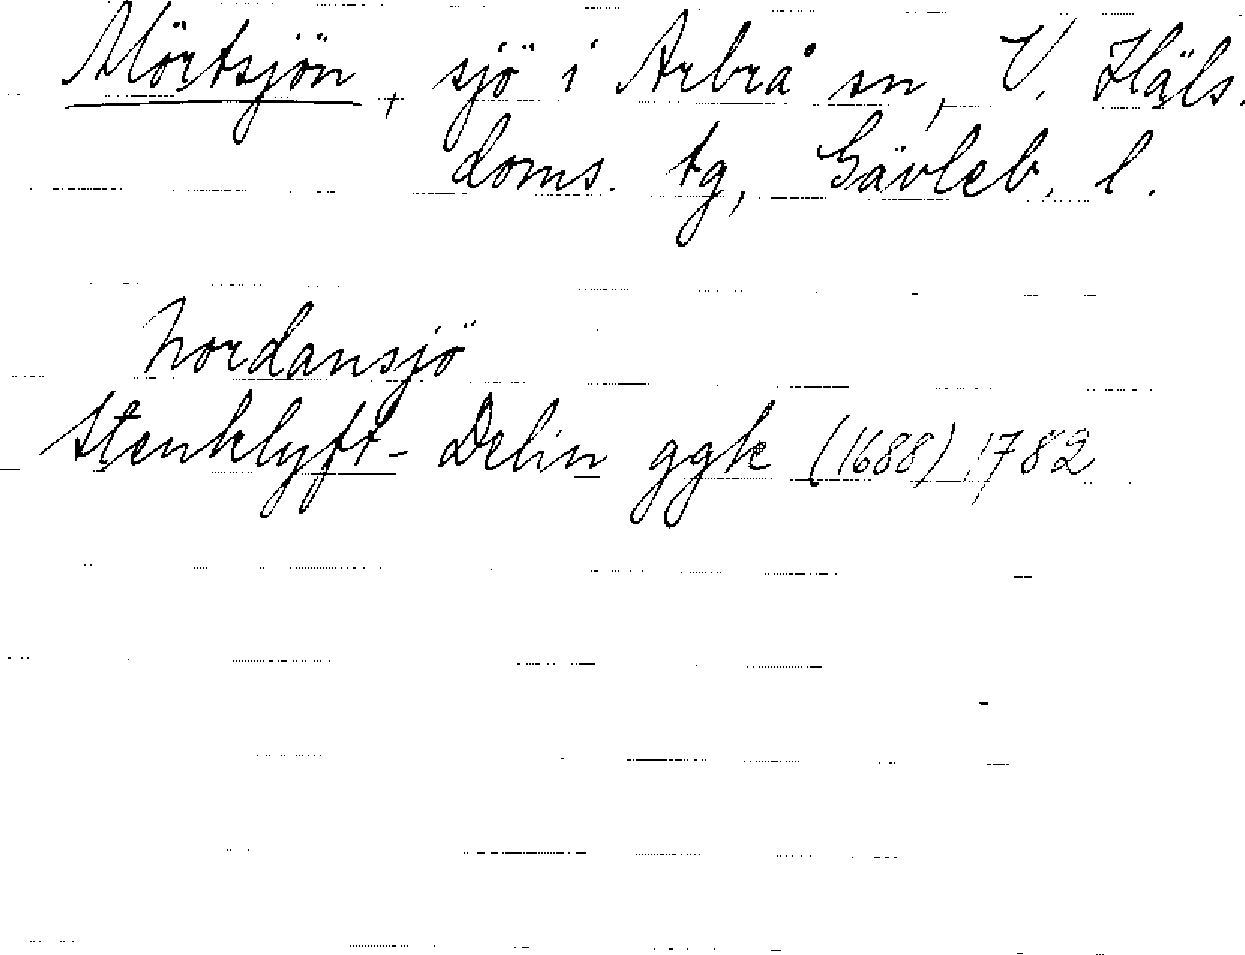 Mörtsjön, sjö i Arbrå sn, V. Häls.
doms. tg, Gävleb. l.
Nordansjö
Stenklyft- Delin ggk (1688) 1782